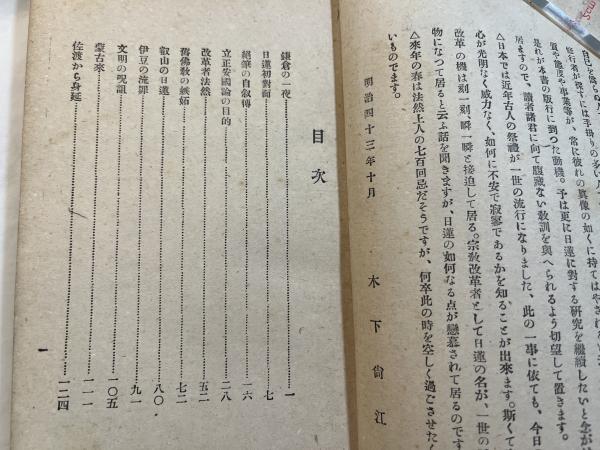 自己を飾らん
修行者が探すには手掛りの多い人
質や態度や事業等が、常に彼れの眞像の如くに持てはやされ
是れが本書の版行に到つた動機。予は更に日蓮に對する研究を繼續したいと念が
居ますので、讀者諸君に向て腹藏ない敎訓を與へられるよう切望して置きます。
△日本では近年古人の祭禮が一世の流行になりました、此の一事に依ても、今日の
心が光明なく威力なく、如何に不安で寂寥であるかを知ることが出來ます。斯くて
改革の機は刻一刻、瞬一瞬と接迫して居る。宗敎改革者として日蓮の名が、一世の
物になつて居ると云ふ話を聞きますが、日蓮の如何なる点が戀慕されて居るのです
△來年の春は法然上人の七百回忌だそうですが、何卒此の時を空しく過ごさせたく
いものでます。
明治四十三年十月
木下尙江
目次
鎌倉の一夜……一
日蓮初對面……七
絕筆の自叙傳……一六
立正安國論の目的……二八
改革者法然……五二
舊佛敎の嫉妬……七二
叡山の日蓮……八〇
伊豆の流罪……九一
文明の呪詛……一〇五
蒙古來……一一一
佐渡から身延……一二四
一